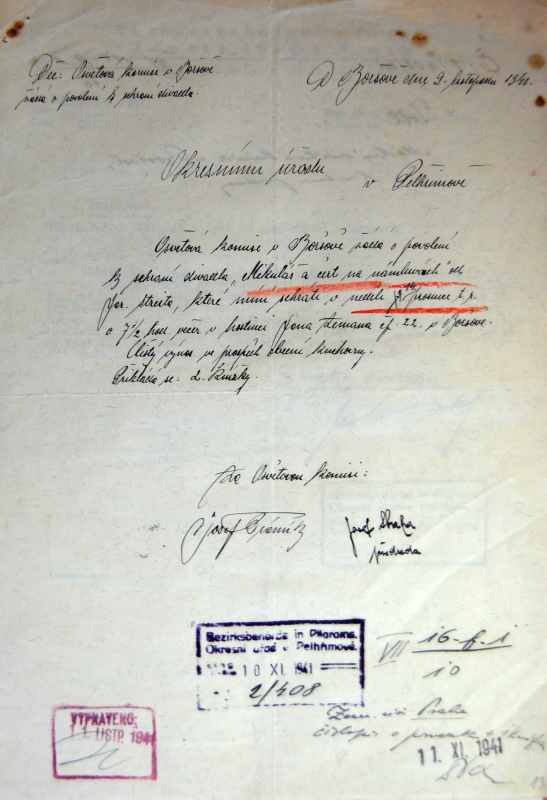 Věc: Osvětová komise v Boršově
žádá o povolení k sehraní divadla.
V Boršově dne 9. listopadu 1941.
Okresnímu úřadu
v Pelhřimově
Osvětová komise v Boršově žádá o povolení
k sehraní divadla „Mikuláš a čert na námluvách" od
Jar. , které míní sehráti v neděli prosince t. r.
o 7½ hod večer v hostinci Jana Zemana čp. 22. v Boršově.
Čistý výnos ve prospěch obecní knihovny.
Přikládá se: 2. knížky.
Za Osvětovou komisi:
Josef
Josef Straka
předseda
Bezirksbehörde in Pilgrams
Okresní úřad v Pelhřimově
10 XI. 1941
2/408
VII 16-f-1
10
VYPRAVENO:
11. LISTP. 1941
Zem. Praha
11. XI. 1941